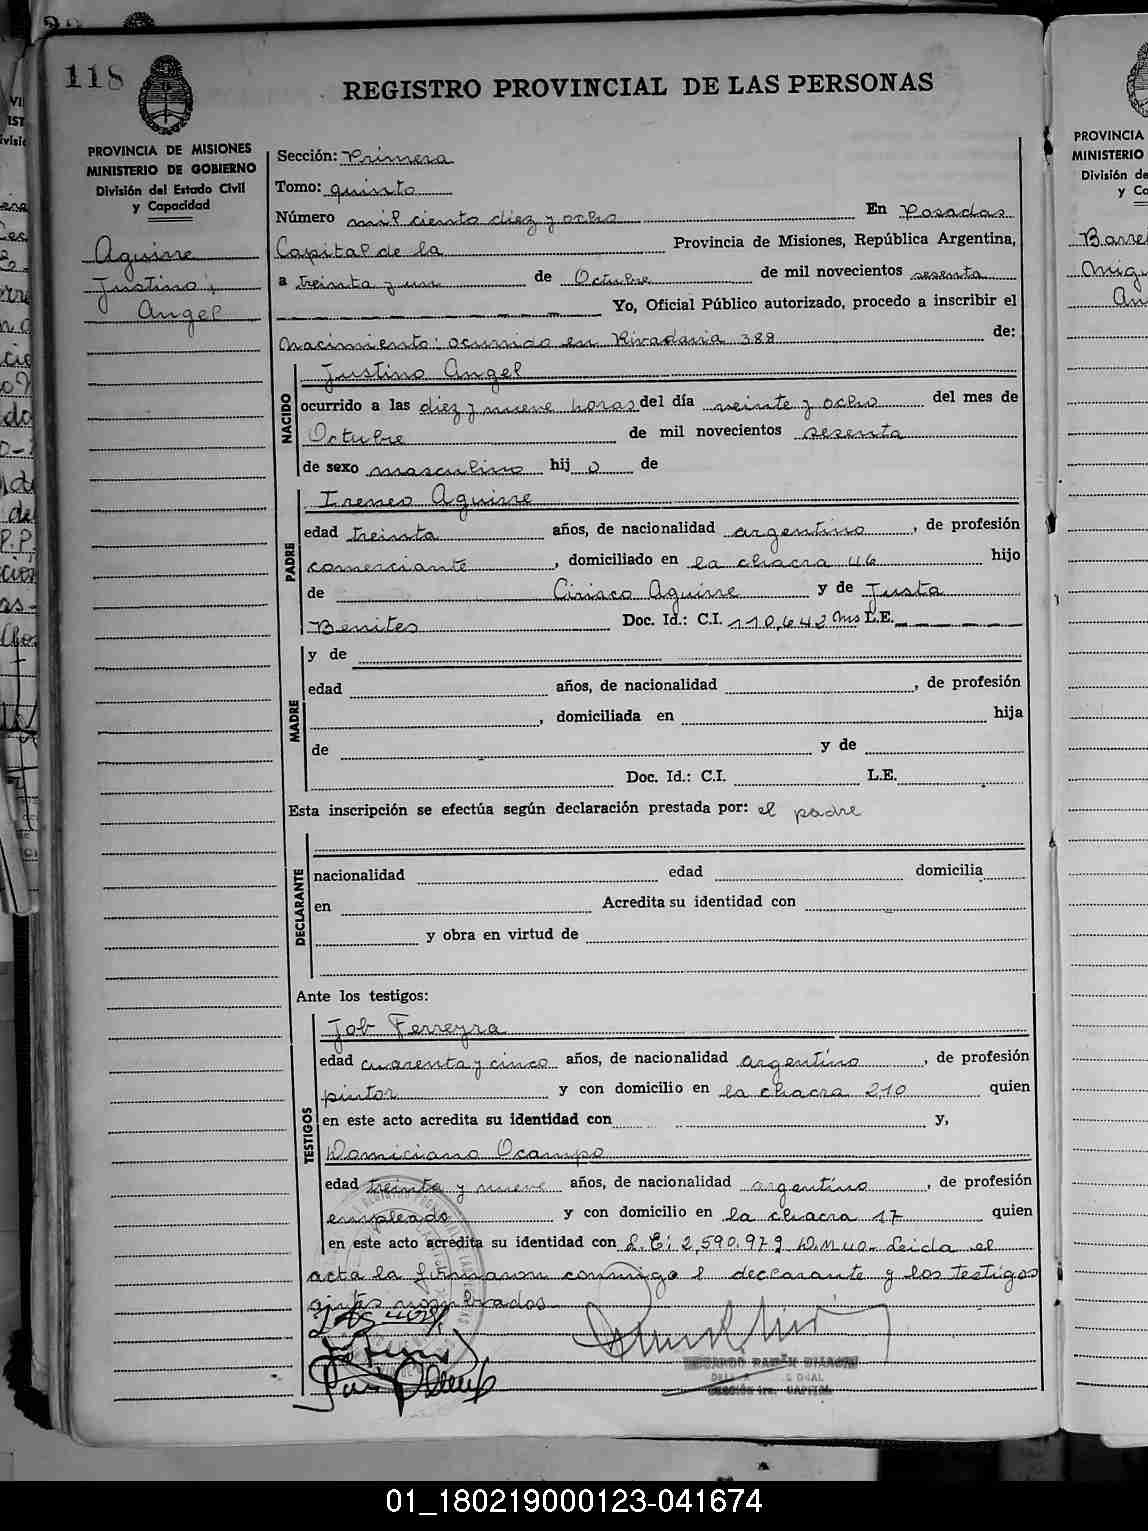 118
REGISTRO PROVINCIAL DE LAS PERSONAS
PROVINCIA DE MISIONES
MINISTERIO DE GOBIERNO
División del Estado Civil
y Capacidad
Aguirre
Justino
Angel
Sección: Primera
Tomo: quinto
Número mil ciento diez y ocho En Posadas
Capital de la Provincia de Misiones, República Argentina,
a treinta y un de Octubre de mil novecientos sesenta
Yo, Oficial Público autorizado, procedo a inscribir el
nacimiento: ocurrido en Rivadavia 388 de:
NACIDO
Justino Angel
ocurrido a las diez y nueve horas del día veinte y ocho del mes de
Octubre de mil novecientos sesenta
de sexo masculino hij o de
PADRE
Ireneo Aguirre
edad treinta años, de nacionalidad argentino, de profesión
comerciante, domiciliado en la chacra 46 hijo
de Ciriaco Aguirre y de Justa
Benites Doc. Id.: C.I. 110.642 Mns L.E.
MADRE
y de
edad años, de nacionalidad , de profesión
, domiciliada en hija
de y de
Doc. Id.: C.I. L.E.
Esta inscripción se efectúa según declaración prestada por: el padre
DECLARANTE
nacionalidad edad domicilia
en Acredita su identidad con
y obra en virtud de
Ante los testigos:
TESTIGOS
Job Ferreyra
edad cuarenta y cinco años, de nacionalidad argentino, de profesión
pintor y con domicilio en la chacra 210 quien
en este acto acredita su identidad con y,
Domiciano Ocampo
edad treinta y nueve años, de nacionalidad argentino, de profesión
empleado y con domicilio en la chacra 17 quien
en este acto acredita su identidad con L.E: 2,590.979 Leida el
acta la firmaron conmigo el declarante y los testigos
nombrados
SECCIÓN 1ra. CAPITAL
PROVINCIA
MINISTERIO
División de
y Ca
01_180219000123-041674